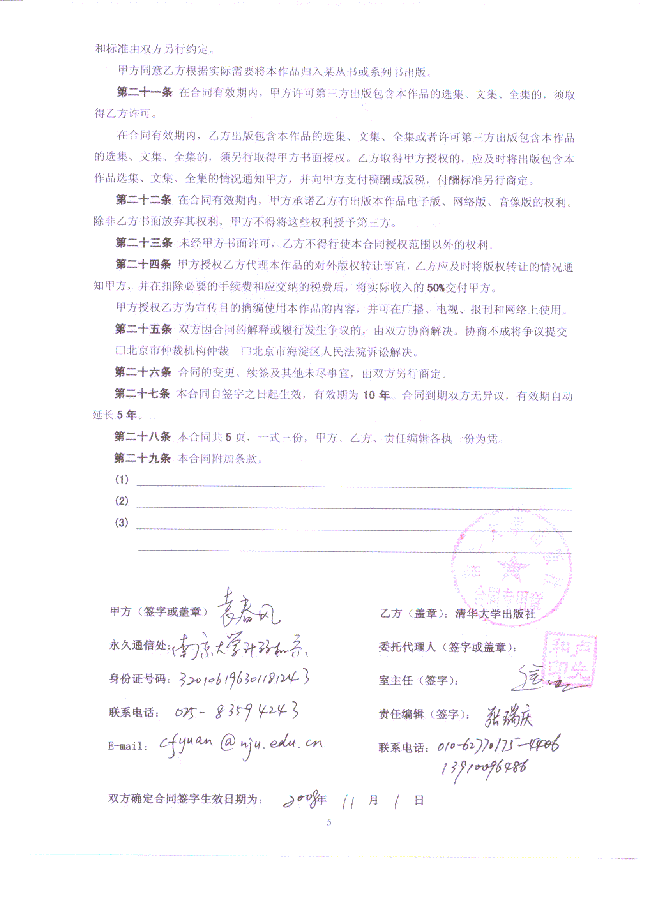 和标准由双方另行约定。
甲方同意乙方根据实际需要将本作品归入某丛书或系列书出版。
第二十一条 在合同有效期内，甲方许可第三方出版包含本作品的选集、文集、全集的，须取
得乙方许可。
在合同有效期内，乙方出版包含本作品的选集、文集、全集或者许可第三方出版包含本作品
的选集、文集、全集的，须另行取得甲方书面授权。乙方取得甲方授权的，应及时将出版包含本
作品选集、文集、全集的情况通知甲方，并向甲方支付稿酬或版税，付酬标准另行商定。
第二十二条 在合同有效期内，甲方承诺乙方有出版本作品电子版、网络版、音像版的权利。
除非乙方书面放弃其权利，甲方不得将这些权利授予第三方。
第二十三条 未经甲方书面许可，乙方不得行使本合同授权范围以外的权利。
第二十四条 甲方授权乙方代理本作品的对外版权转让事宜，乙方应及时将版权转让的情况通
知甲方，并在扣除必要的手续费和应交纳的税费后，将实际收入的50%交付甲方。
甲方授权乙方为宣传目的摘编使用本作品的内容，并可在广播、电视、报刊和网络上使用。
第二十五条 双方因合同的解释或履行发生争议的，由双方协商解决。协商不成将争议提交
□北京市仲裁机构仲裁 □北京市海淀区人民法院诉讼解决。
第二十六条 合同的变更、续签及其他未尽事宜，由双方另行商定。
第二十七条 本合同自签字之日起生效，有效期为 10 年。合同到期双方无异议，有效期自动
延长 5 年。
第二十八条 本合同共 5 页，一式三份，甲方、乙方、责任编辑各执一份为凭。
第二十九条 本合同附加条款。
(1)
(2)
(3)
合同专用章
甲方（签字或盖章） 袁春风
乙方（盖章）：清华大学出版社
永久通信处：南京大学计算机系
委托代理人（签字或盖章）：
身份证号码：320106196301181243
室主任（签字）：
联系电话：025-83594243
责任编辑（签字）：张瑞庆
E-mail：cfyuan@nju.edu.cn
联系电话：010-62770175-4406
13910096486
双方确定合同签字生效日期为：2008年 11 月 1 日
5